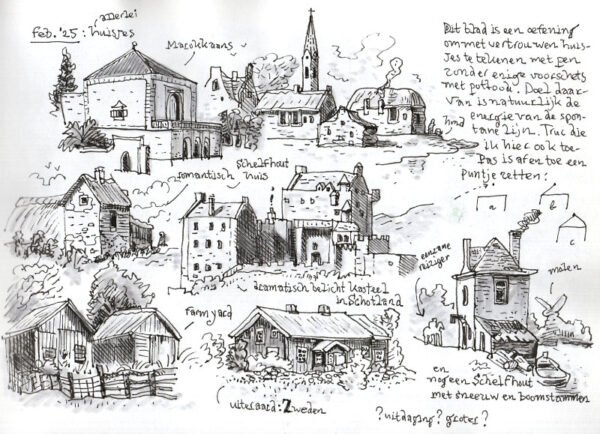 Feb. '25: allerlei huisjes
Marokkaans
Dit blad is een oefening
om met vertrouwen huis-
jes te tekenen met pen
zonder enige voorschets
met potlood. Doel daar-
van is natuurlijk de
energie van de spon-
tane lijn. Truc die
ik hier ook toe-
pas is af en toe een
puntje zetten:
hond
a
b
c
romantisch
Schelfhout
huis
eenzame
reiziger
molen
dramatisch belicht kasteel
in Schotland
Farmyard
uiteraard: Zweden
en
nog een Schelfhout
met sneeuw en boomstammen
? uitdaging? groter?